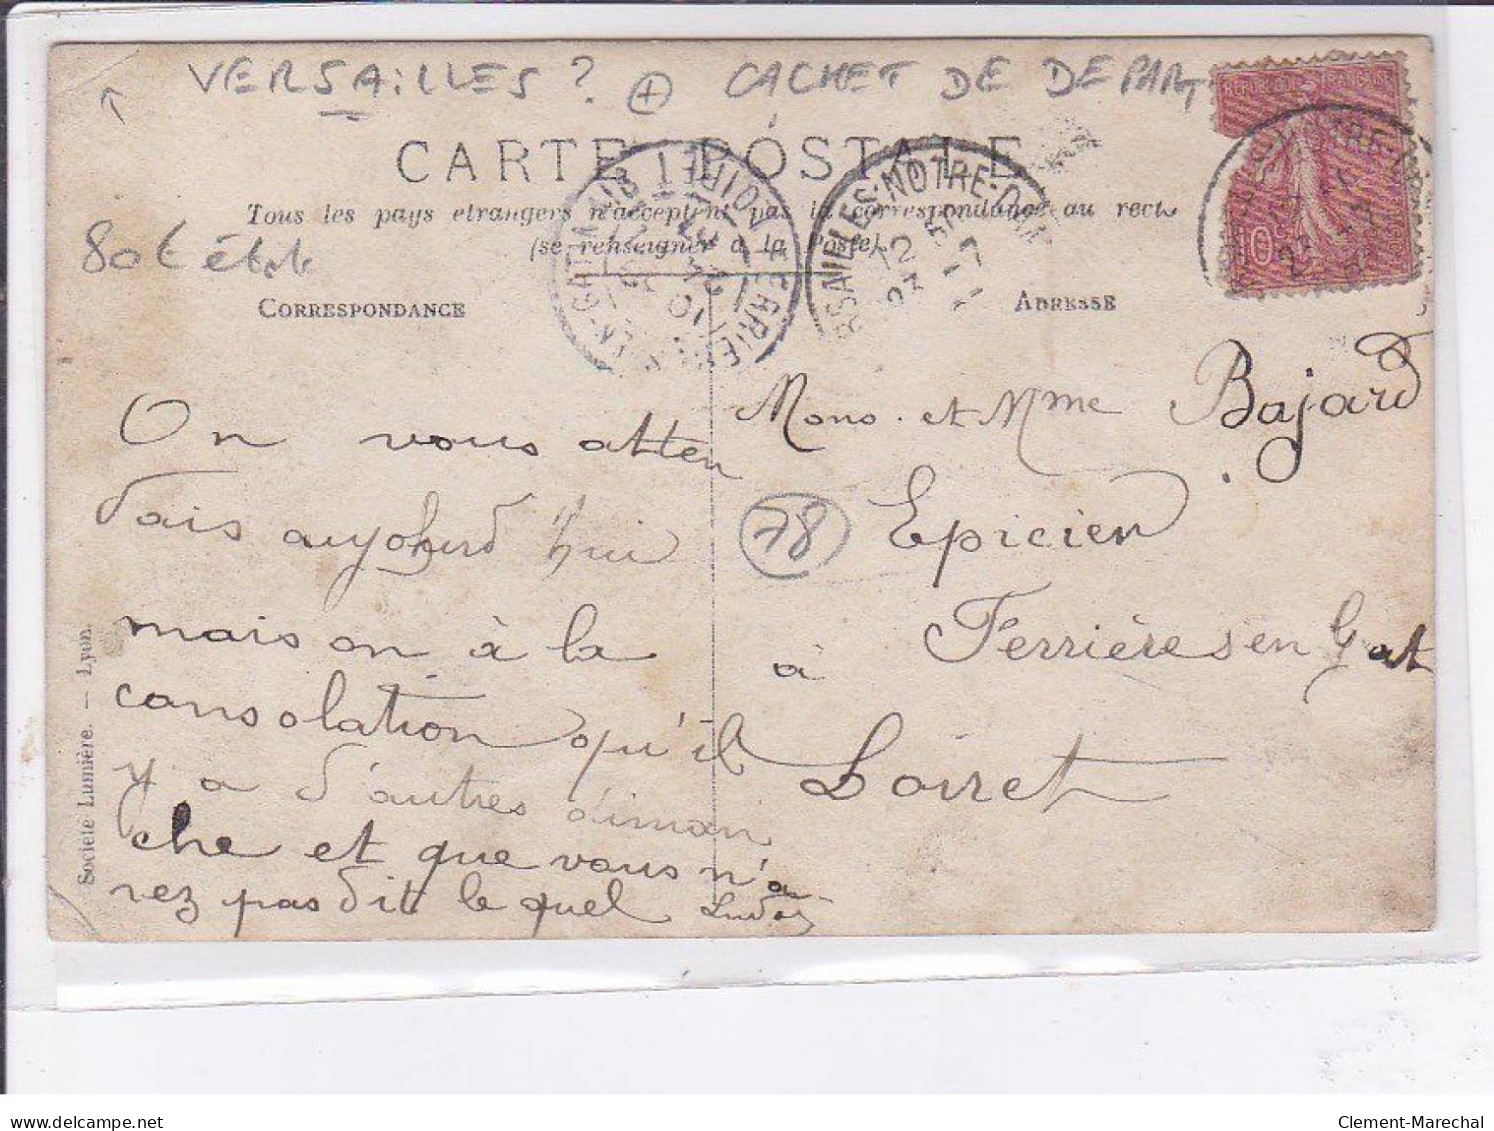 VERSAILLES ? + CACHET DE DEPART
CARTE POSTALE
Tous les pays etrangers n'acceptent pas la correspondance au recto
(se renseigner à la Poste).
80 €
CORRESPONDANCE
ADRESSE
REPUBLIQUE FRANÇAISE
10
POSTES
FERRIERES-EN-GATINAIS
LOIRET
VERSAILLES-NOTRE-DAME
On vous atten
dais aujoherd'hui
mais on à la
consolation qu'il
y a d'autres diman
che et que vous n'a
rez pas dit le quel
Mons. et Mme Bajard
78
Epicier
à Ferrières en Gat
Loiret
Société Lumière. — Lyon.
delcampe.net
Clement-Marechal